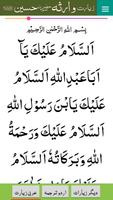 زیارت وارثہ حسین
بِسْمِ اللّٰهِ الرَّحْمٰنِ الرَّحِيْمِ
اَلسَّلَامُ عَلَيْكَ يَا
اَبَاعَبْدِ اللّٰهِ اَلسَّلَامُ
عَلَيْكَ يَابْنَ رَسُوْلِ اللّٰهِ
اَلسَّلَامُ عَلَيْكَ وَرَحْمَةُ
اللّٰهِ وَبَرَكَاتُهُ اَلسَّلَامُ
دیگر زیارات اردو ترجمہ عربی زیارت